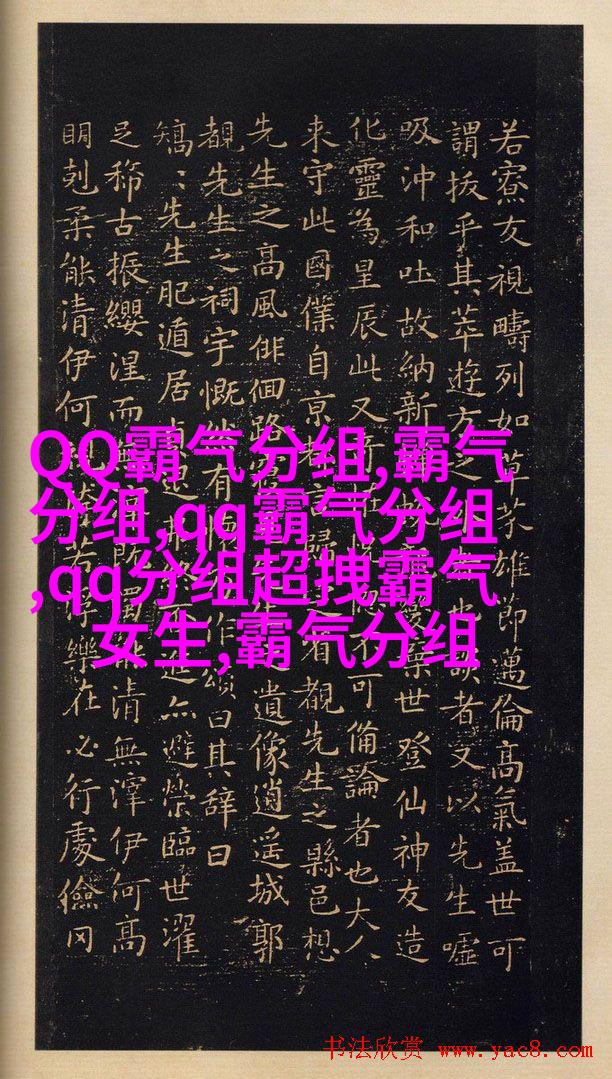 若寮友視疇列如草芥雄節邁倫高氣盖世可
謂拔乎其萃遊方之也談者又以先生噓
吸沖和吐故納新棄世登仙神友造
化靈為星辰此又奇不可備論者也大人
来守此國僕自京言歸省覩先生之縣邑想
先生之高風俳佪路遺像逍遥城郭
覩先生之祠宇慨然有作頌曰其辭曰
矯:先生肥遁居退亦避榮臨世濯
足稀古振纓涅而無既濁能清無滓伊何高
明剋柔能清伊何若浮樂在必行處儉罔
QQ霸气分组,霸气
分组,qq霸气分组
,qq分组超拽霸气
女生,霸气分组
书法欣赏 www.yac8.com